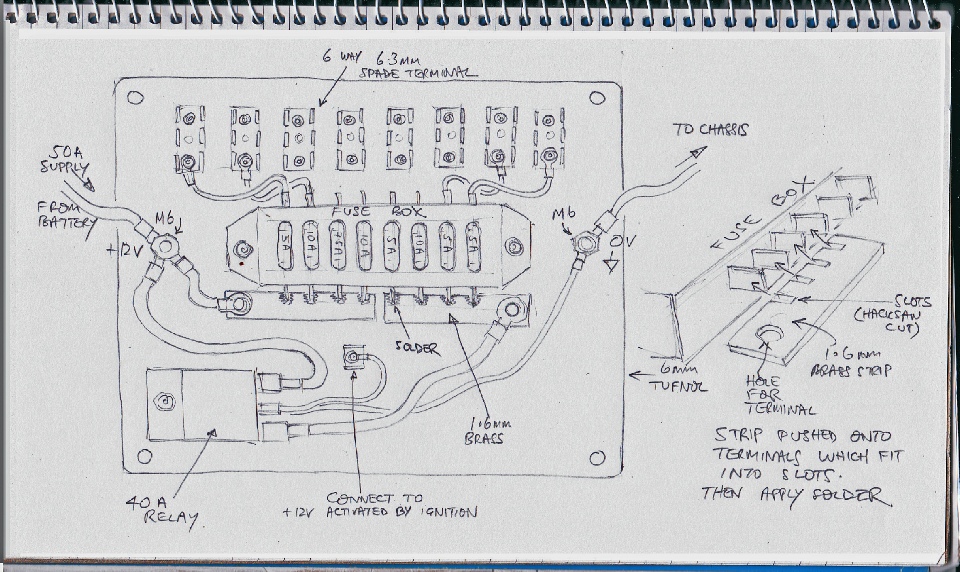 6 WAY 6.3mm
SPADE TERMINAL
50A
SUPPLY
FROM
BATTERY
M6
+12V
TO CHASSIS
M6
0V
FUSE BOX
5A
10A
7.5A
10A
5A
10A
5A
5A
SOLDER
1.6mm
BRASS
40A
RELAY.
CONNECT TO
+12V ACTIVATED BY IGNITION
6mm
TUFNOL
FUSE BOX
SLOTS
(HACKSAW
CUT)
1.6mm
BRASS STRIP
HOLE
FOR
TERMINAL
STRIP PUSHED ONTO
TERMINALS WHICH FIT
INTO SLOTS.
THEN APPLY SOLDER